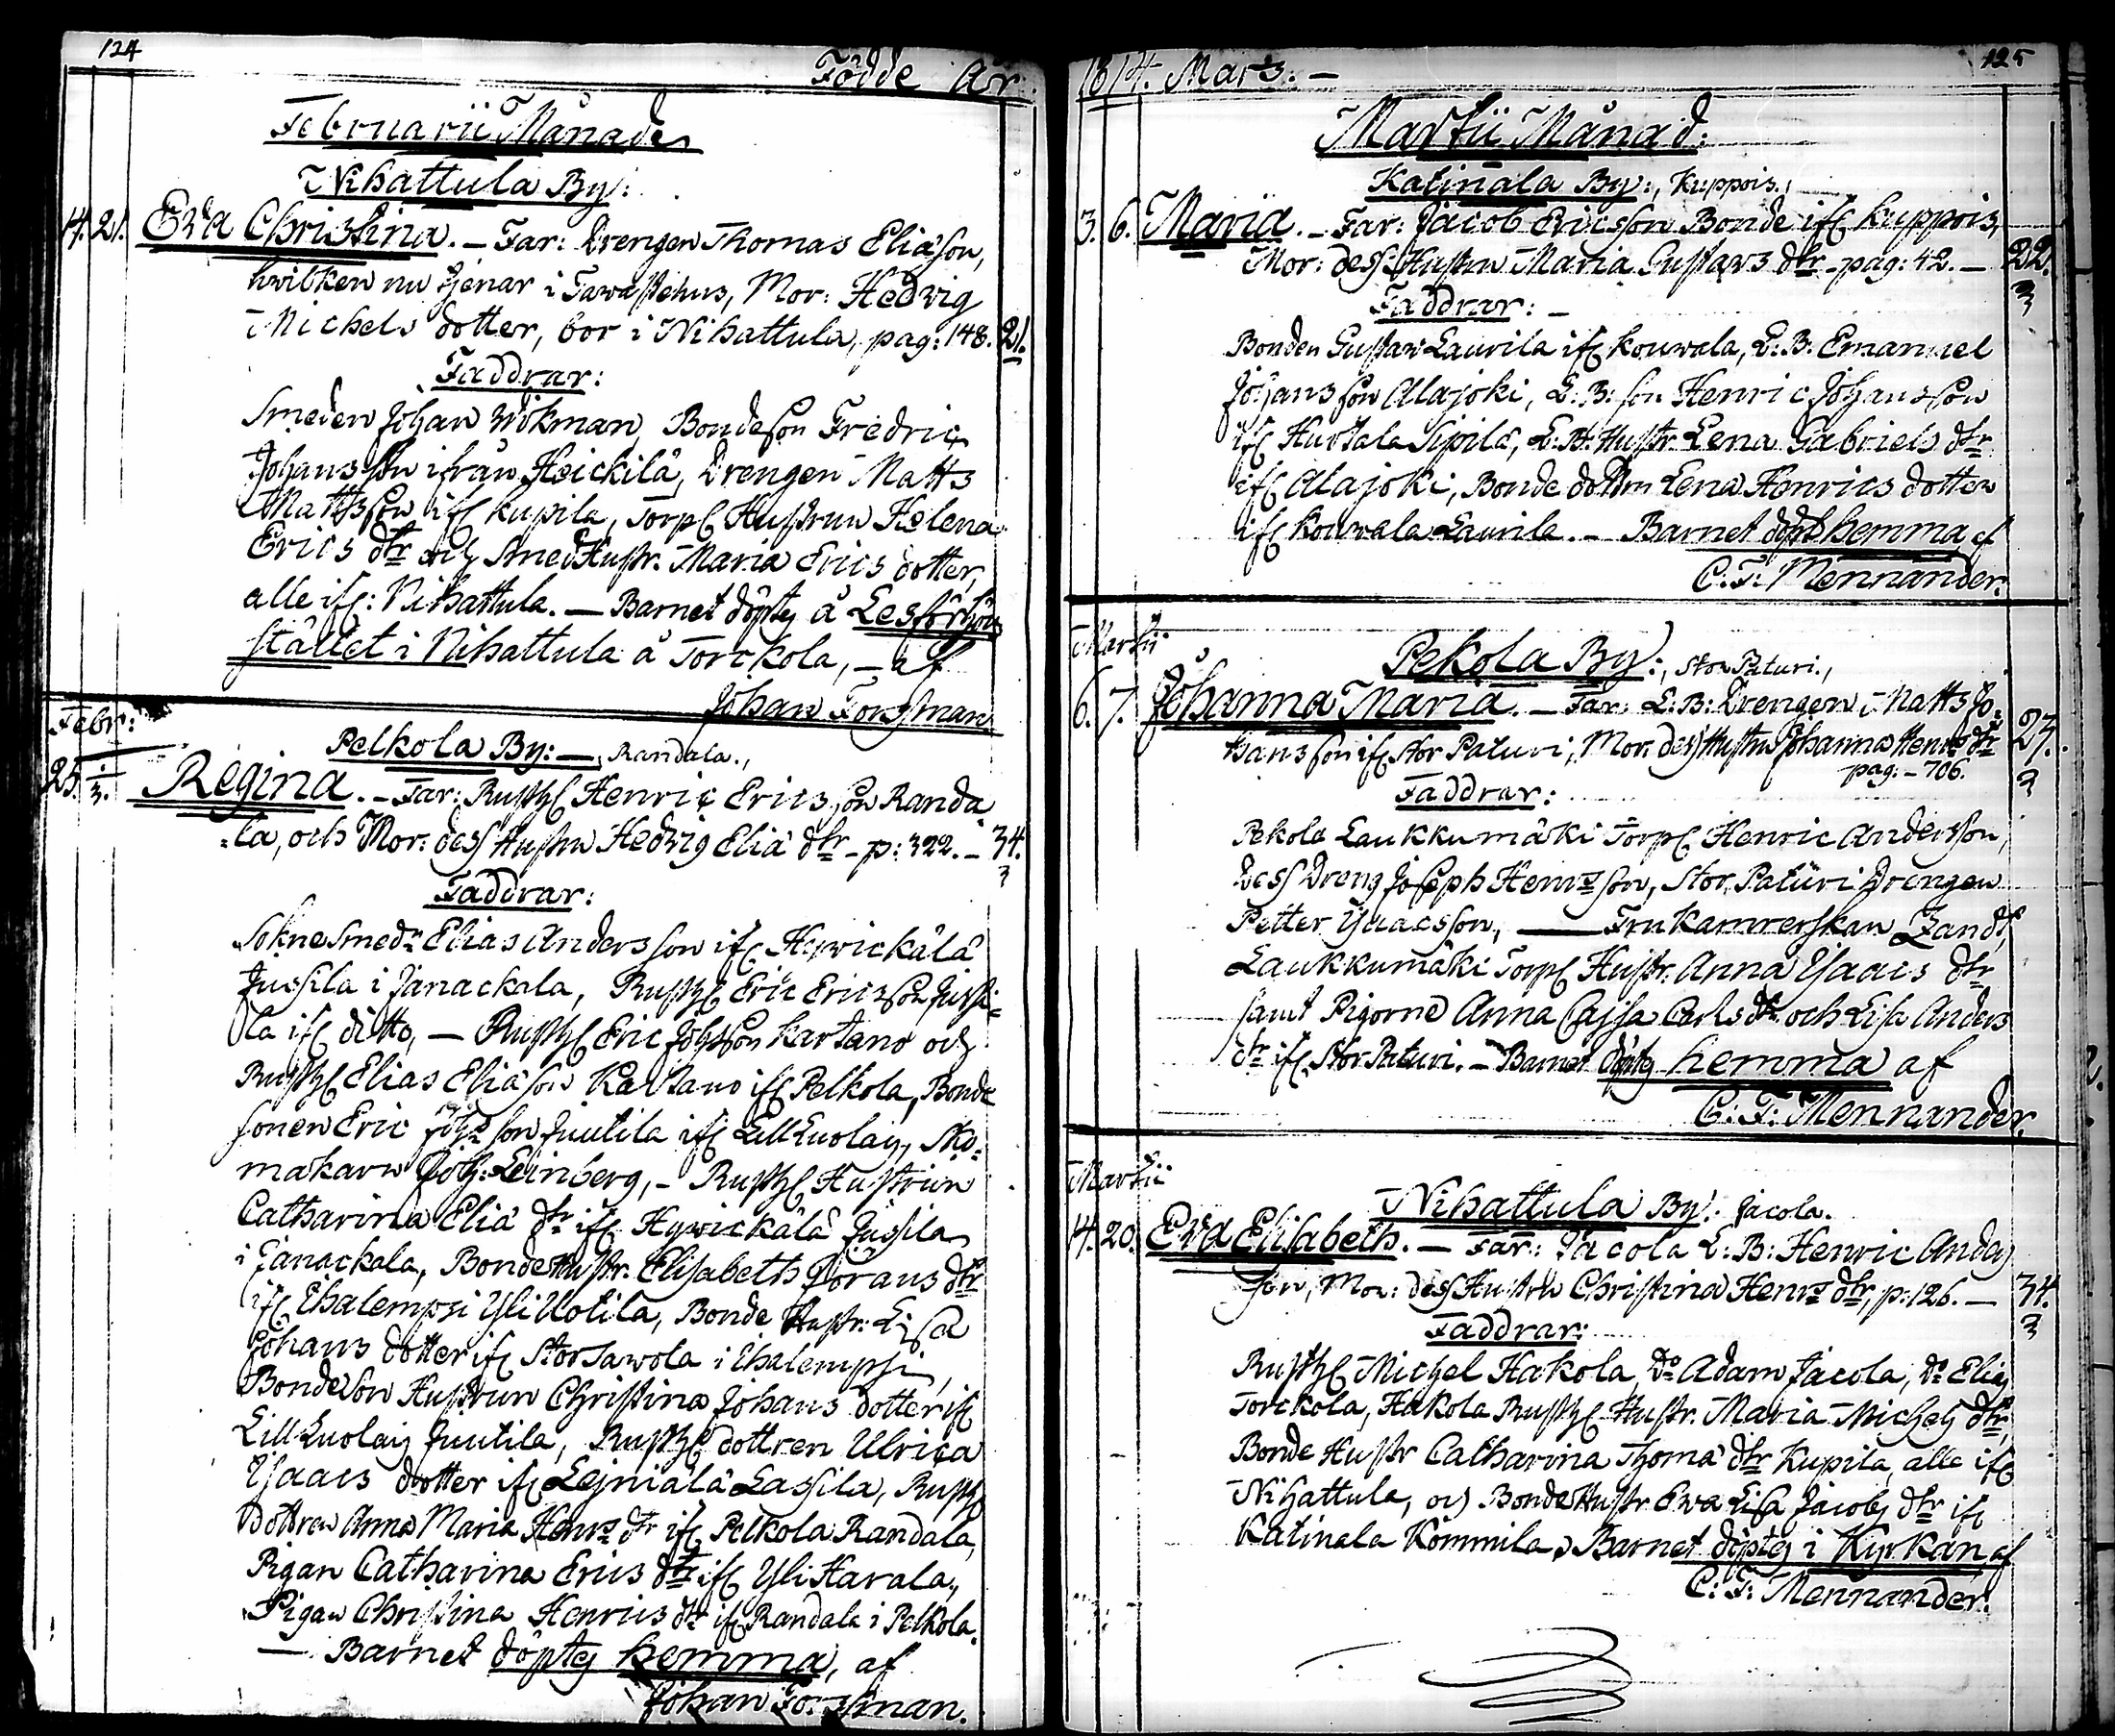 124
Födde År
Februarii Månader
Nihattula By:
14. 21. Eva Christina. – Far: Drengen Thomas Eliæson,
hvilken nu tjenar i Tawastehus, Mor: Hedvig
Michels dotter, bor i Nihattula, pag: 148. 21.
Faddrar:
Smeden Johan Wikman, Bondeson Fredric
Johansson ifrån Heickilä, Drengen Matts
Mattsson ifr Kupila, Torp. Hustrun Helena
Erics dtr och Smed Hustr. Maria Erics dotter,
alle ifr: Nihattula. — Barnet döptes å Lesförhörs
stället i Nihattula å Torckola, — af
Johan Forssman
Febr:
Pelkola By: — Randala.,
25. 1/3. Regina. – Far: Rusth. Henric Ericsson Randa
la, och Mor: dess Hustru Hedvig Eliæ dtr – p: 322. – 34.
3
Faddrar:
Sokne Smed: Elias Andersson ifr Hyvickälä
Jussila i Janackala, Rusth. Eric Ericsson Jussi-
la ifr ditto, — Rusth. Eric Johsson Kartano och
Rusth. Elias Eliæson Kartano ifr Pelkola, Bonde
sonen Eric Johsson Juutila ifr Lill Luolais, Sko-
makarn Joh: Leinberg, – Rusth. Hustrun
Catharina Eliæ dtr ifr Hyvickälä Jussila
i Janackala, Bonde Hustr. Elisabeth Görans dtr
ifr Ihalempsi Yli Uotila, Bonde Hustr: Lisa
Johans dotter ifr Stor Sawola i Ihalempsi,
Bondeson Hustrun Christina Johans dotter ifr
Lill-Luolais Juutila, Rusth. dottren Ulrica
Isaacs dotter ifr Leiniälä Lassila, Rusth
dottren Anna Maria Henrs dtr ifr Pelkola Randala,
Pigan Catharina Erics dtr ifr Yli Harala,
Pigan Christina Henrics dtr ifr Randala i Pelkola.
— Barnet döptes hemma, af
Johan Forssman.
1814. Mars. – 125
Martii Månad:
Katinala By:, Kuppois.,
3. 6. Maria. – Far: Jacob Ericsson Bonde ifr Kuppois,
Mor: dess Hustru Maria Gustavs dtr – pag: 42. — 22.
3
Faddrar: –
Bonden Gustav Laurila ifr Kouvala, L: B. Emanuel
Johansson Alajoki, L: B: son Henric Johansson
ifr Hurtala Sipilä, L: B: Hustr. Lena Gabriels dtr
ifr Alajoki, Bonde dottren Lena Henrics dotter
ifr Kouvala Laurila. – Barnet döpt hemma af
C: F: Mennander.
Martii
Pekola By:, Stor Paturi.,
6. 7. Johanna Maria. – Far: L: B: Drengen Matts Jo-
hansson ifr Stor Paturi, Mor: dess Hustru Johanna Henrs dtr 27.
pag: – 706. 3
Faddrar:
Pekola Laukkumäki Torp. Henric Andersson,
dess Dreng Joseph Henrsson, Stor Paturi Drengen
Petter Isaacsson, —— Fru Kamrerskan Zandt,
Laukkumäki Torp. Hustr. Anna Isaacs dtr
samt Pigorne Anna Cajsa Carls dtr och Lisa Anders
dtr ifr Stor Paturi. – Barnet döptes hemma af
C: F: Mennander.
Martii
Nihattula By: Jacola.
14. 20. Eva Elisabeth. — Far: Jacola L: B: Henric Anders
son, Mor: dess Hustru Christina Henrs dtr, p: 126. — 34.
3
Faddrar:
Rusth. Michel Hakola, Do Adam Jacola, do Elias
Torckola, Hakola Rusth. Hustr. Maria Michels dtr,
Bonde Hustr Catharina Thomæ dtr Kupila, alle ifr
Nihattula, och Bonde Hustr. Eva Lisa Jacobs dtr ifr
Katinala Kömmilä, Barnet döptes i Kyrkan af
C: F: Mennander.